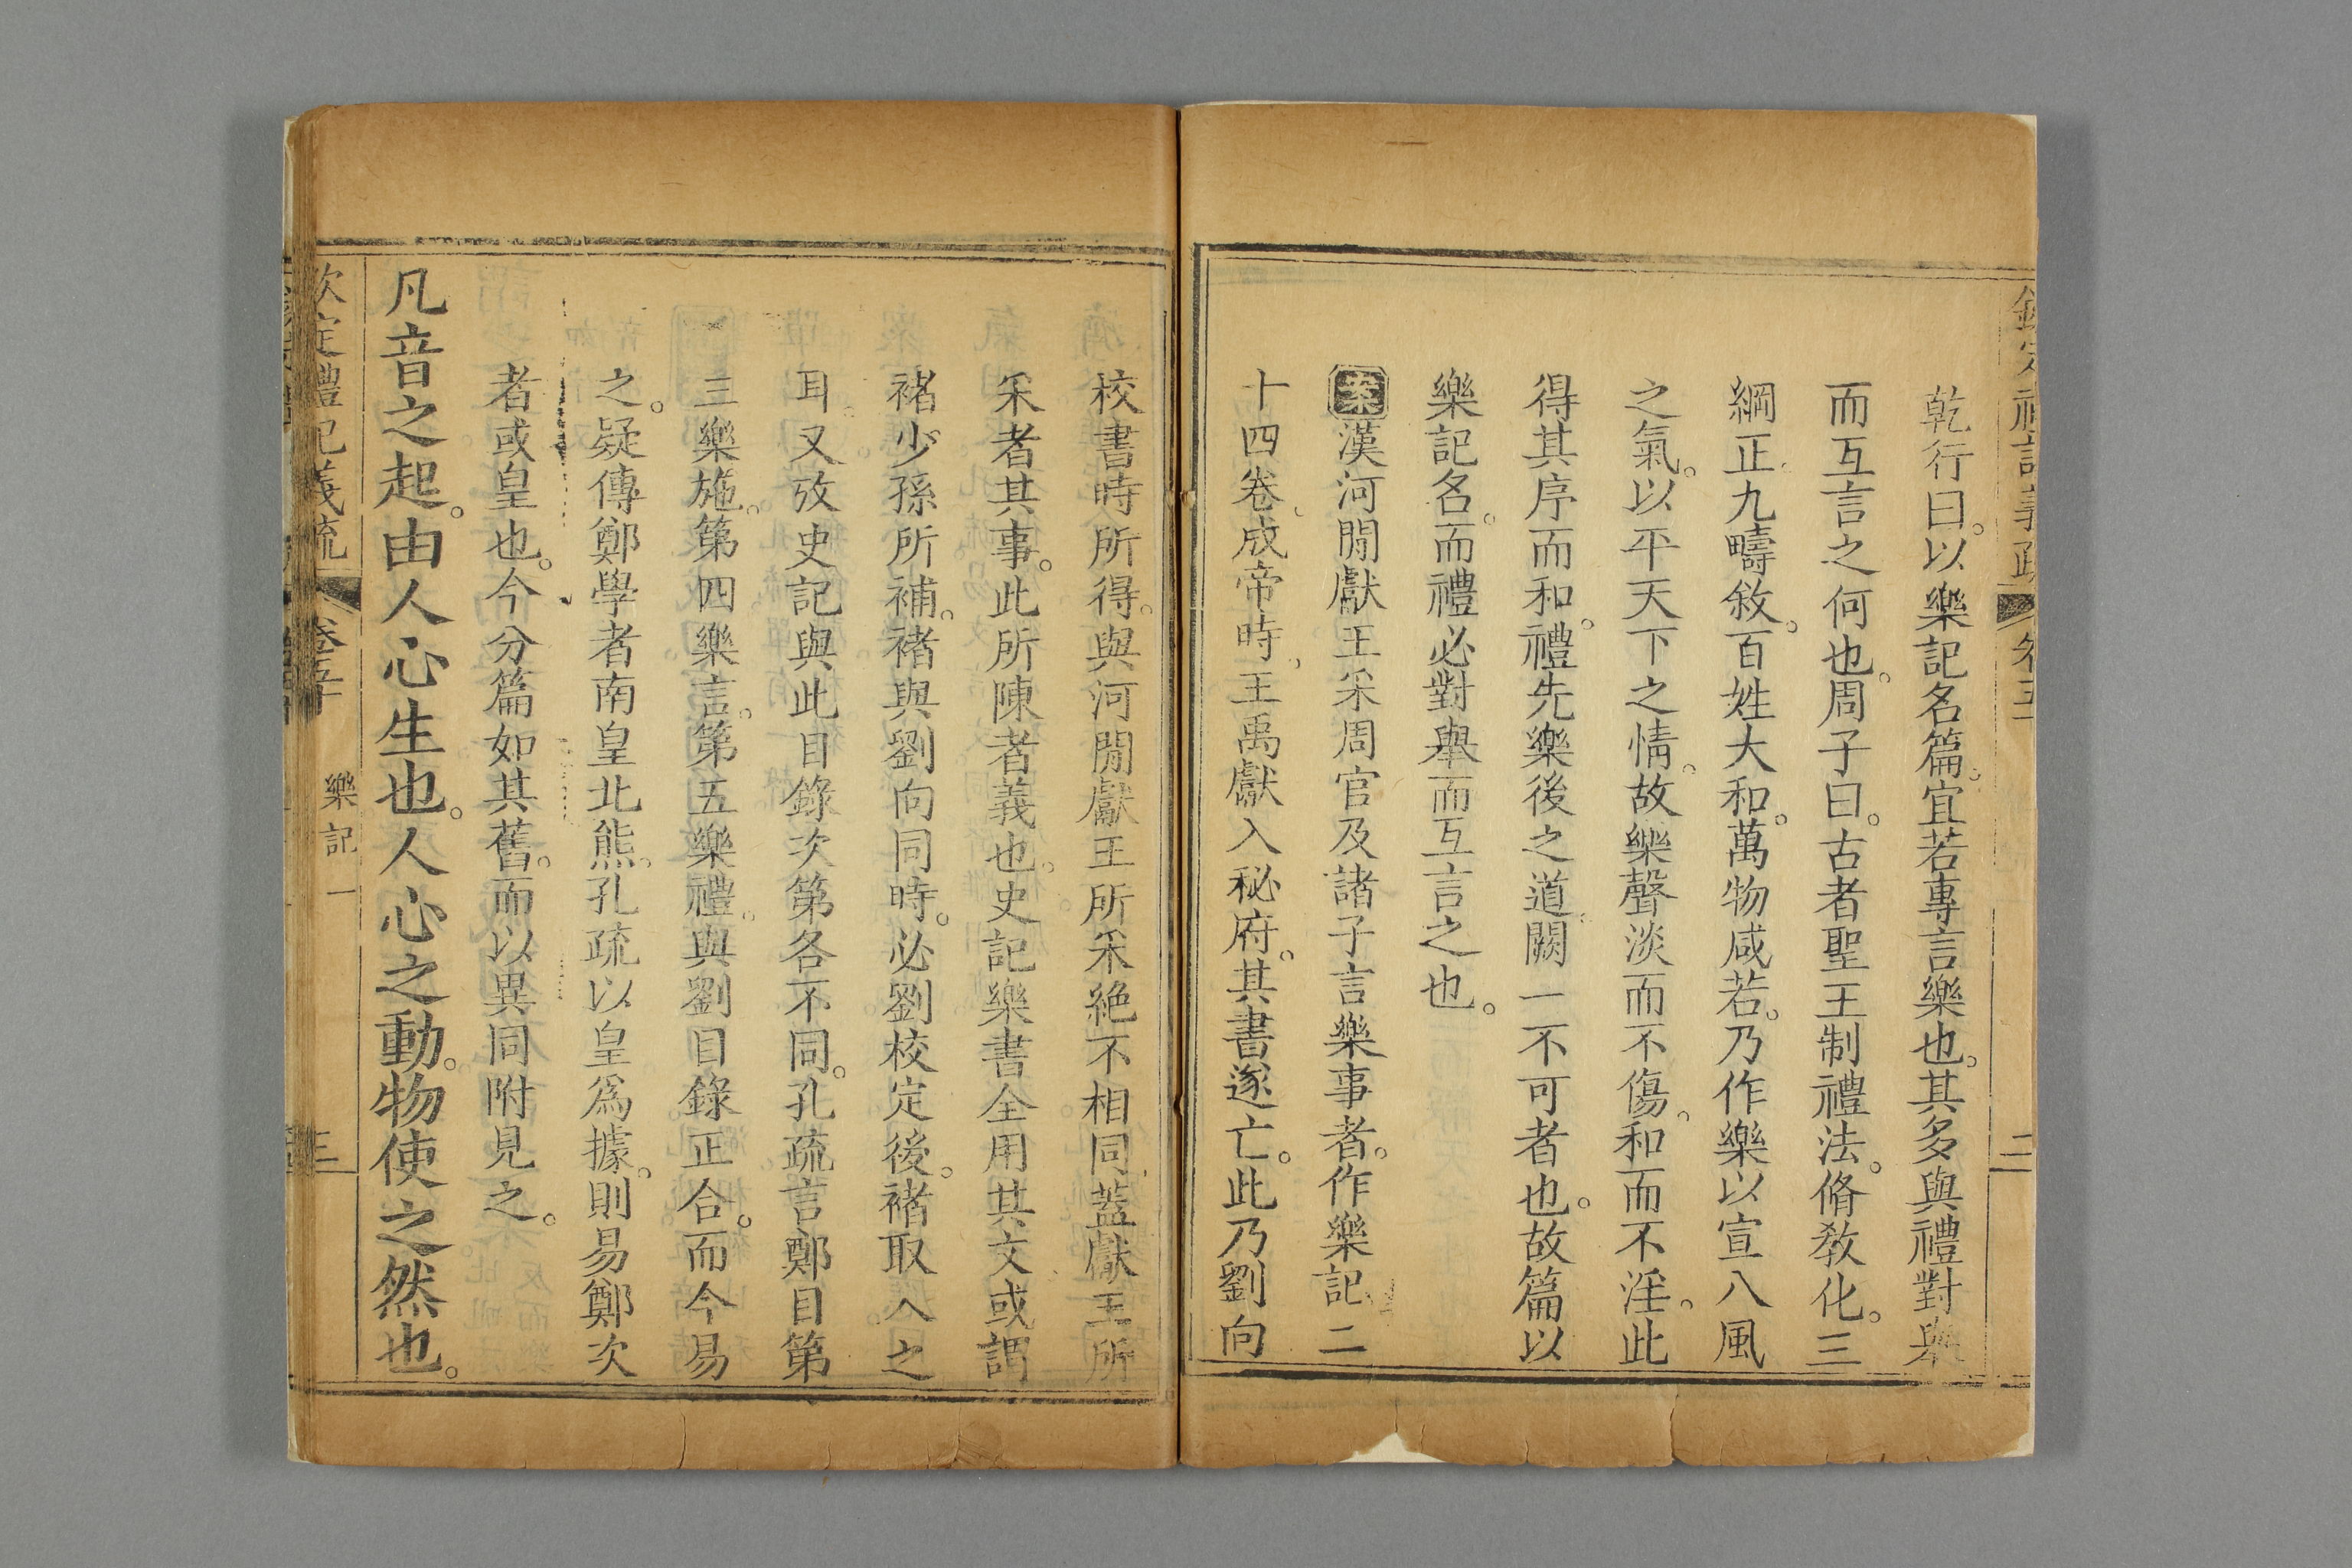 欽定禮記義疏 卷五十 二
乾行曰。以樂記名篇。宜若專言樂也。其多與禮對舉
而互言之何也。周子曰。古者聖王制禮法。脩敎化。三
綱正。九疇敘。百姓大和。萬物咸若。乃作樂以宣八風
之氣。以平天下之情。故樂聲淡而不傷。和而不淫。此
得其序而和。禮先樂後之道。闕一不可者也。故篇以
樂記名。而禮必對舉而互言之也。
案漢河閒獻王采周官及諸子言樂事者。作樂記二
十四卷。成帝時。王禹獻入秘府。其書遂亡。此乃劉向
校書時所得。與河閒獻王所采絶不相同。葢獻王所
采者其事。此所陳者義也。史記樂書全用其文。或謂
褚少孫所補。褚與劉向同時。必劉校定後。褚取入之
耳。又攷史記與此目錄次第各不同。孔疏言鄭目第
三樂施。第四樂言。第五樂禮。與劉目錄正合。而今易
之。疑傳鄭學者南皇北熊。孔疏以皇爲據。則易鄭次
者或皇也。今分篇如其舊。而以異同附見之。
凡音之起。由人心生也。人心之動。物使之然也。
欽定禮記義疏 卷五十 樂記一 三